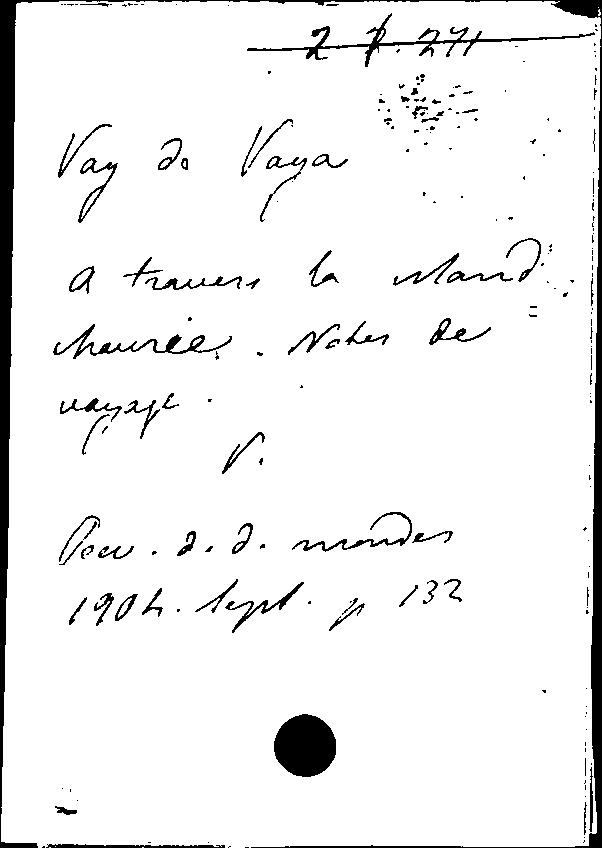 2 P. 271
Vay de Vaya
A travers la Mand
chourie. Notes de
voyage.
V.
Rev. d. d. mondes
1904. Sept. p 132